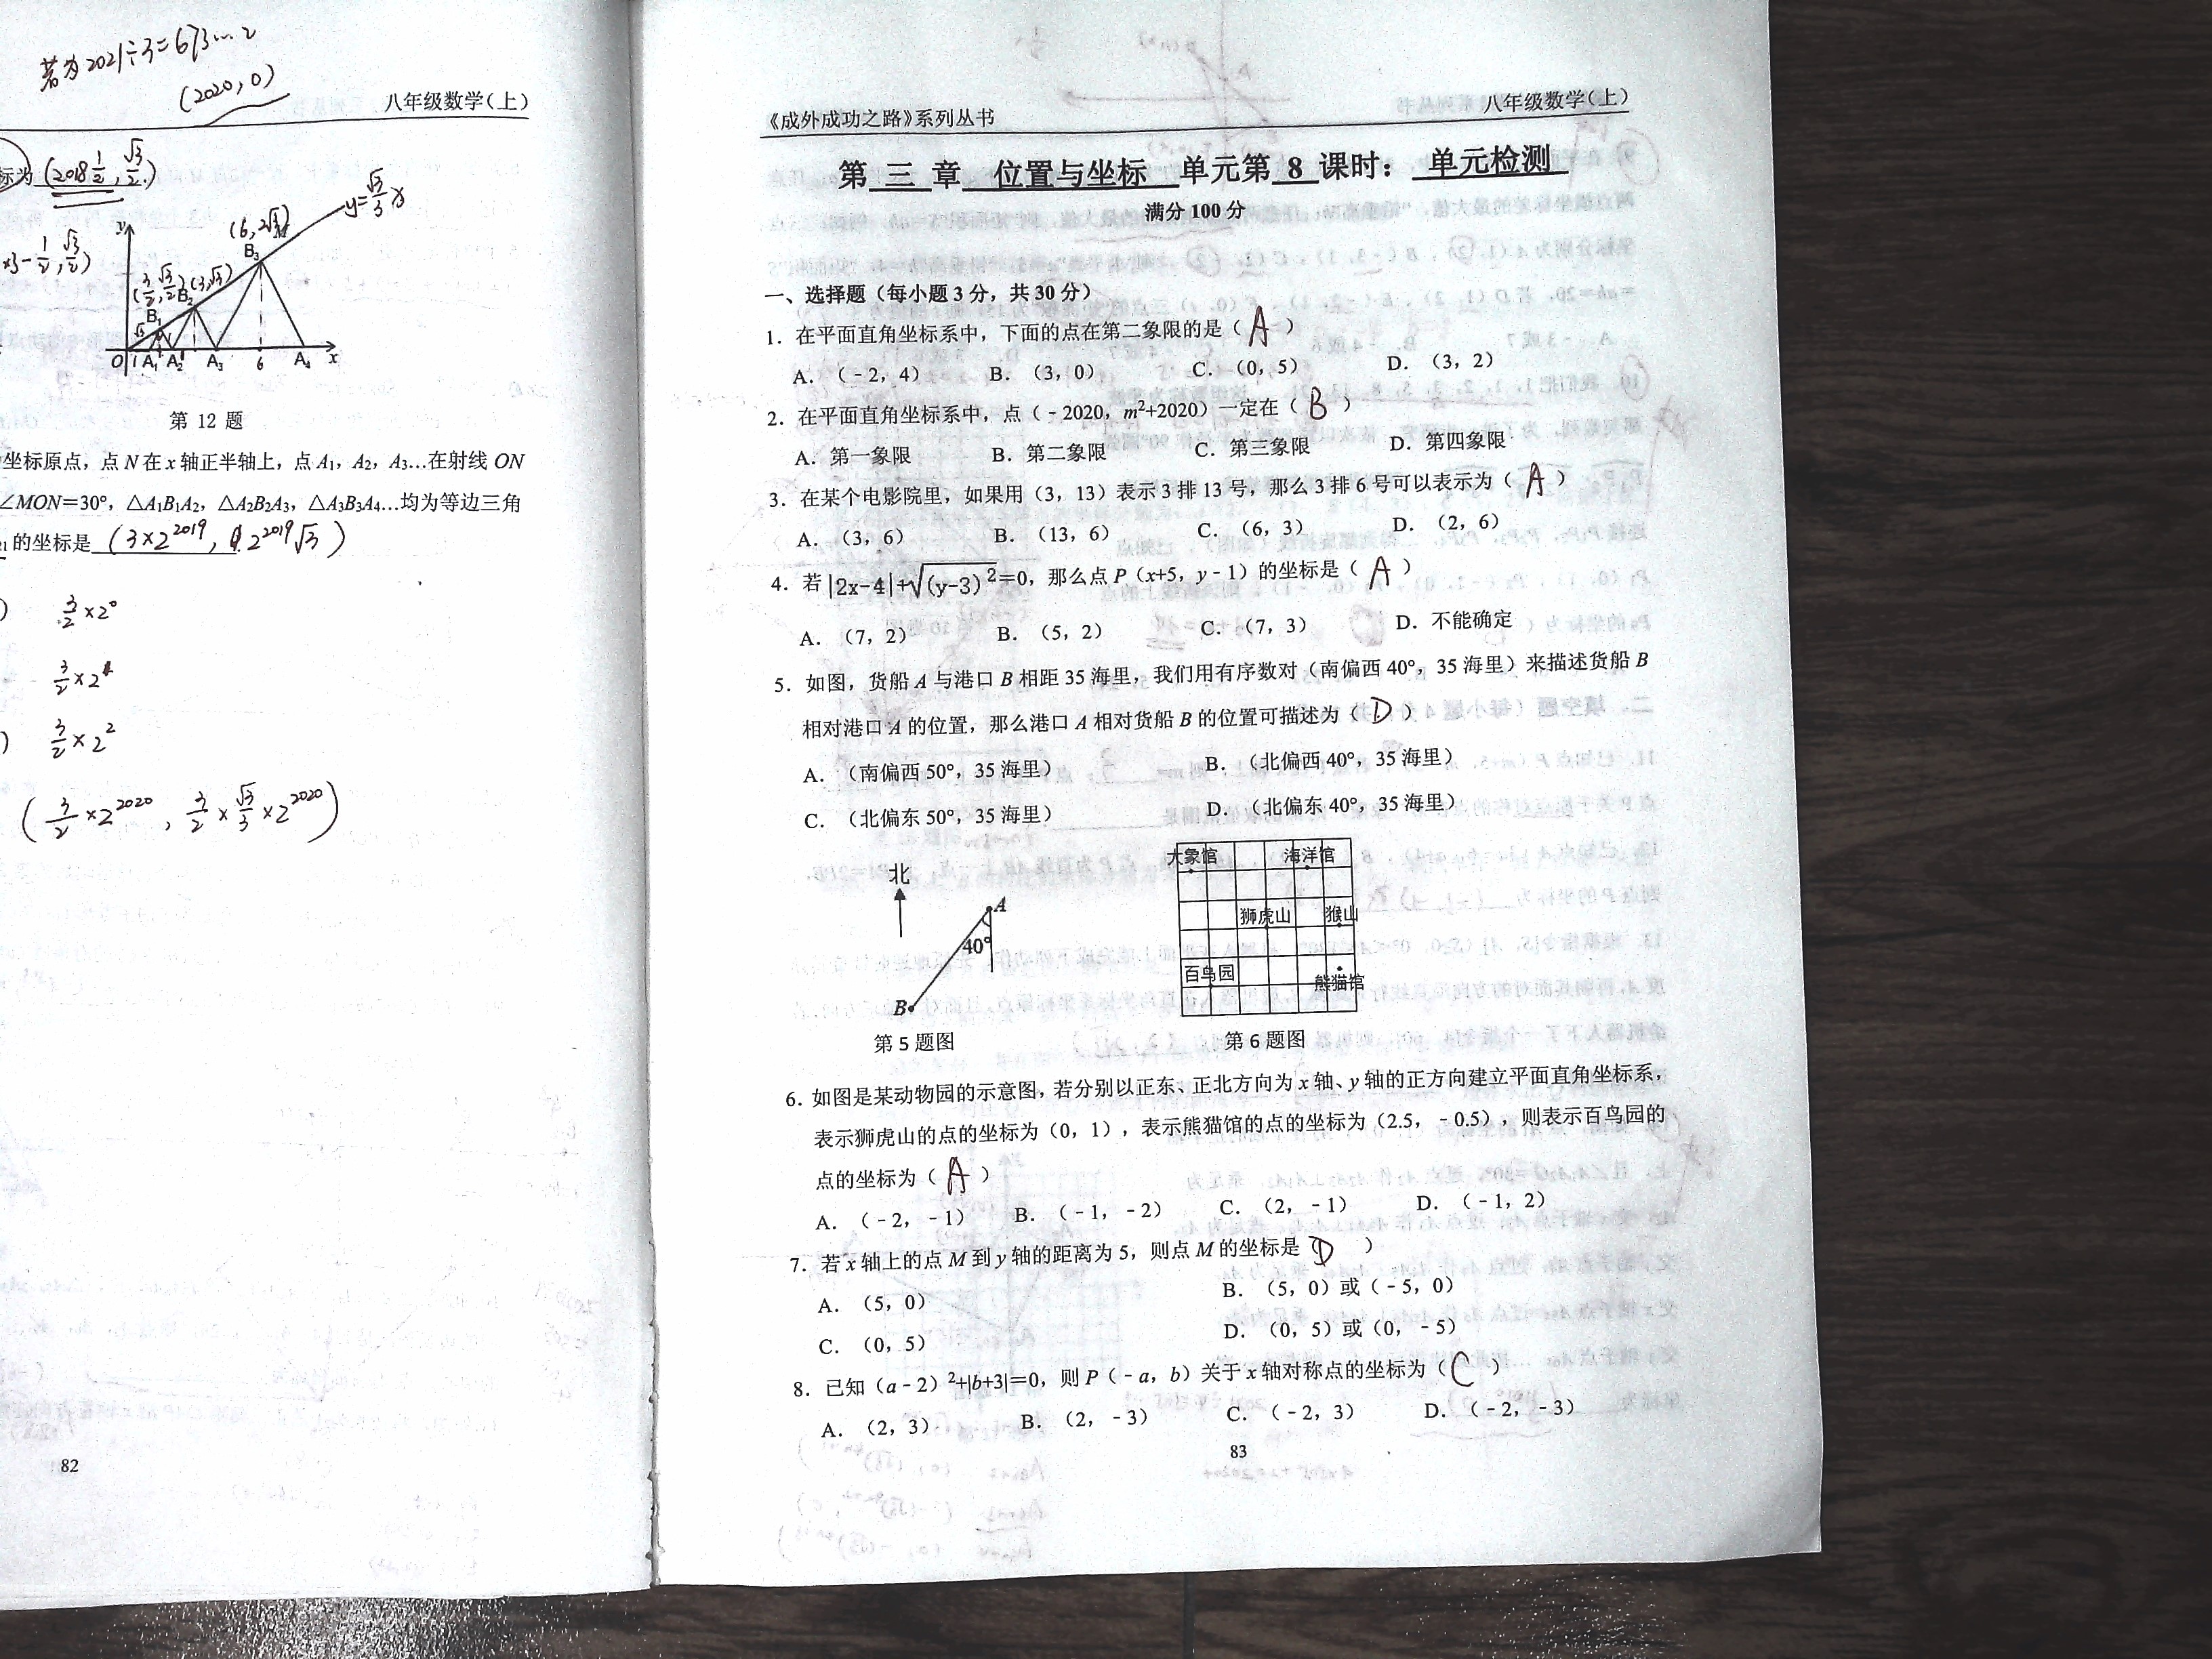 若为2021÷3=673…2
(2020,0)
八年级数学(上)
标为(2018½, √3/2)
y=√3/3 x
(6, 2√3)
×3-1/2, √3/2)
(3/2, √3/2) (3,√3)
y
B₁ B₂ B₃
O 1 A₁ A₂ A₃ 6 A₄ x
第 12 题
坐标原点，点 N 在 x 轴正半轴上，点 A₁，A₂，A₃…在射线 ON
∠MON=30°，△A₁B₁A₂，△A₂B₂A₃，△A₃B₃A₄…均为等边三角
的坐标是 (3×2²⁰¹⁹, 2²⁰¹⁹√3)
3/2×2⁰
3/2×2
3/2×2²
(3/2×2²⁰²⁰, 3/2×√3/3×2²⁰²⁰)
82
《成外成功之路》系列丛书
八年级数学(上)
第 三 章 位置与坐标 单元第 8 课时： 单元检测
满分 100 分
一、选择题（每小题 3 分，共 30 分）
1. 在平面直角坐标系中，下面的点在第二象限的是（ A ）
A. （-2，4） B. （3，0） C. （0，5） D. （3，2）
2. 在平面直角坐标系中，点（-2020，m²+2020）一定在（ B ）
A. 第一象限 B. 第二象限 C. 第三象限 D. 第四象限
3. 在某个电影院里，如果用（3，13）表示 3 排 13 号，那么 3 排 6 号可以表示为（ A ）
A. （3，6） B. （13，6） C. （6，3） D. （2，6）
4. 若|2x-4|+√(y-3)²=0，那么点 P（x+5，y-1）的坐标是（ A ）
A. （7，2） B. （5，2） C. （7，3） D. 不能确定
5. 如图，货船 A 与港口 B 相距 35 海里，我们用有序数对（南偏西 40°，35 海里）来描述货船 B
相对港口 A 的位置，那么港口 A 相对货船 B 的位置可描述为（ D ）
A. （南偏西 50°，35 海里） B. （北偏西 40°，35 海里）
C. （北偏东 50°，35 海里） D. （北偏东 40°，35 海里）
北
A
40°
B
第 5 题图
大象馆 海洋馆
狮虎山 猴山
百鸟园 熊猫馆
第 6 题图
6. 如图是某动物园的示意图，若分别以正东、正北方向为 x 轴、y 轴的正方向建立平面直角坐标系，
表示狮虎山的点的坐标为（0，1），表示熊猫馆的点的坐标为（2.5，-0.5），则表示百鸟园的
点的坐标为（ A ）
A. （-2，-1） B. （-1，-2） C. （2，-1） D. （-1，2）
7. 若 x 轴上的点 M 到 y 轴的距离为 5，则点 M 的坐标是 D ）
A. （5，0） B. （5，0）或（-5，0）
C. （0，5） D. （0，5）或（0，-5）
8. 已知（a-2）²+|b+3|=0，则 P（-a，b）关于 x 轴对称点的坐标为（ C ）
A. （2，3） B. （2，-3） C. （-2，3） D. （-2，-3）
83